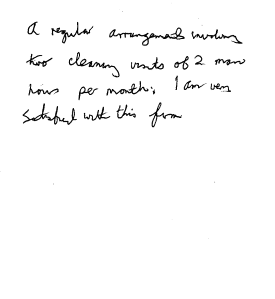 A regular arrangement involving
two cleaning visits of 2 man
hours per month; I am very
satisfied with this firm